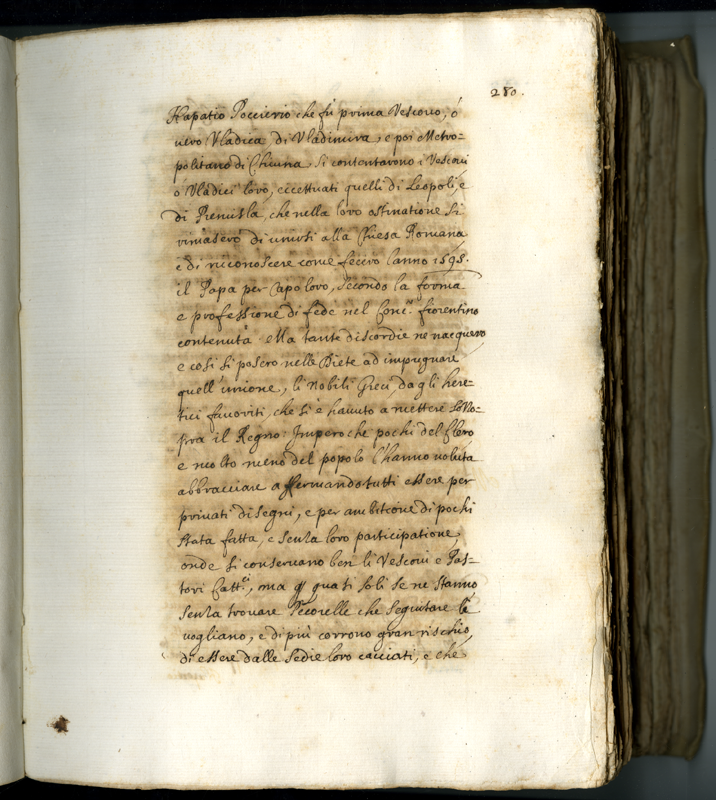 280.
Hapatio Poccierio che fù prima Vescovo, ò
uero Vladica di Vladimira, e poi Metro-
politano di Chiuna. Si contentarono i Vescoui
o Vladici loro, eccettuati quelli di Leopoli, e
di Premisla, che nella loro ostinatione si
rimasero di unirsi alla Chiesa Romana
e di riconoscere come fecero lanno 1595.
il Papa per Capo loro, secondo la forma
e professione di fede nel Conc.º fiorentino
contenuta. Ma tante discordie ne nacquero
e cosi si posero nelle Diete ad impugnare
quell'unione, li Nobili Greci dagli here-
tici favoriti, che si è hauuto a mettere sotto-
pra il Regno: Imperoche pochi del Clero
e molto meno del popolo l'hanno voluta
abbracciare affermando tutti essere per
priuati disegni, e per ambitione di pochi
stata fatta, e senza loro participatione,
onde si conseruano ben li Vescoui e Pas-
tori Catt.ci, ma quasi soli se ne stanno
senza trouare Pecorelle che seguitare le
uogliano, e di più corrono gran rischio,
di essere dalle Sedie loro cacciati, e che